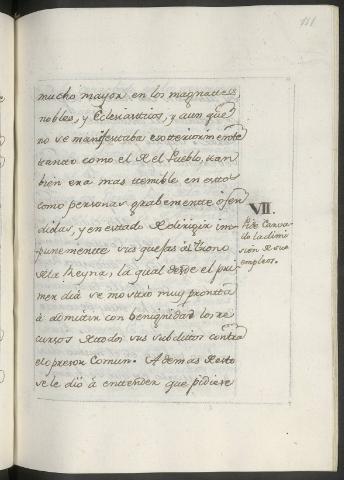 mucho mayor en los magnattes,
nobles, y Eclesiasticos, y aun que
no se manifestaba exotteriormente
tanto como el del Pueblo, tan
bien era mas ttemible en estos
como personas grabementte ofen
didas, y en estado de dirigir im-
punementte sus quejas al Trono
de la Reyna, la qual desde el pri
mer dia se mostro mui prontta
á admitir con benignidad los re
cursos de todos sus subditos contra
el opresor Comun. Ademas de esto
se le dió á enttender que pidiese
VII.
Pide Carva-
do la dimi
sión de sus
empleos.